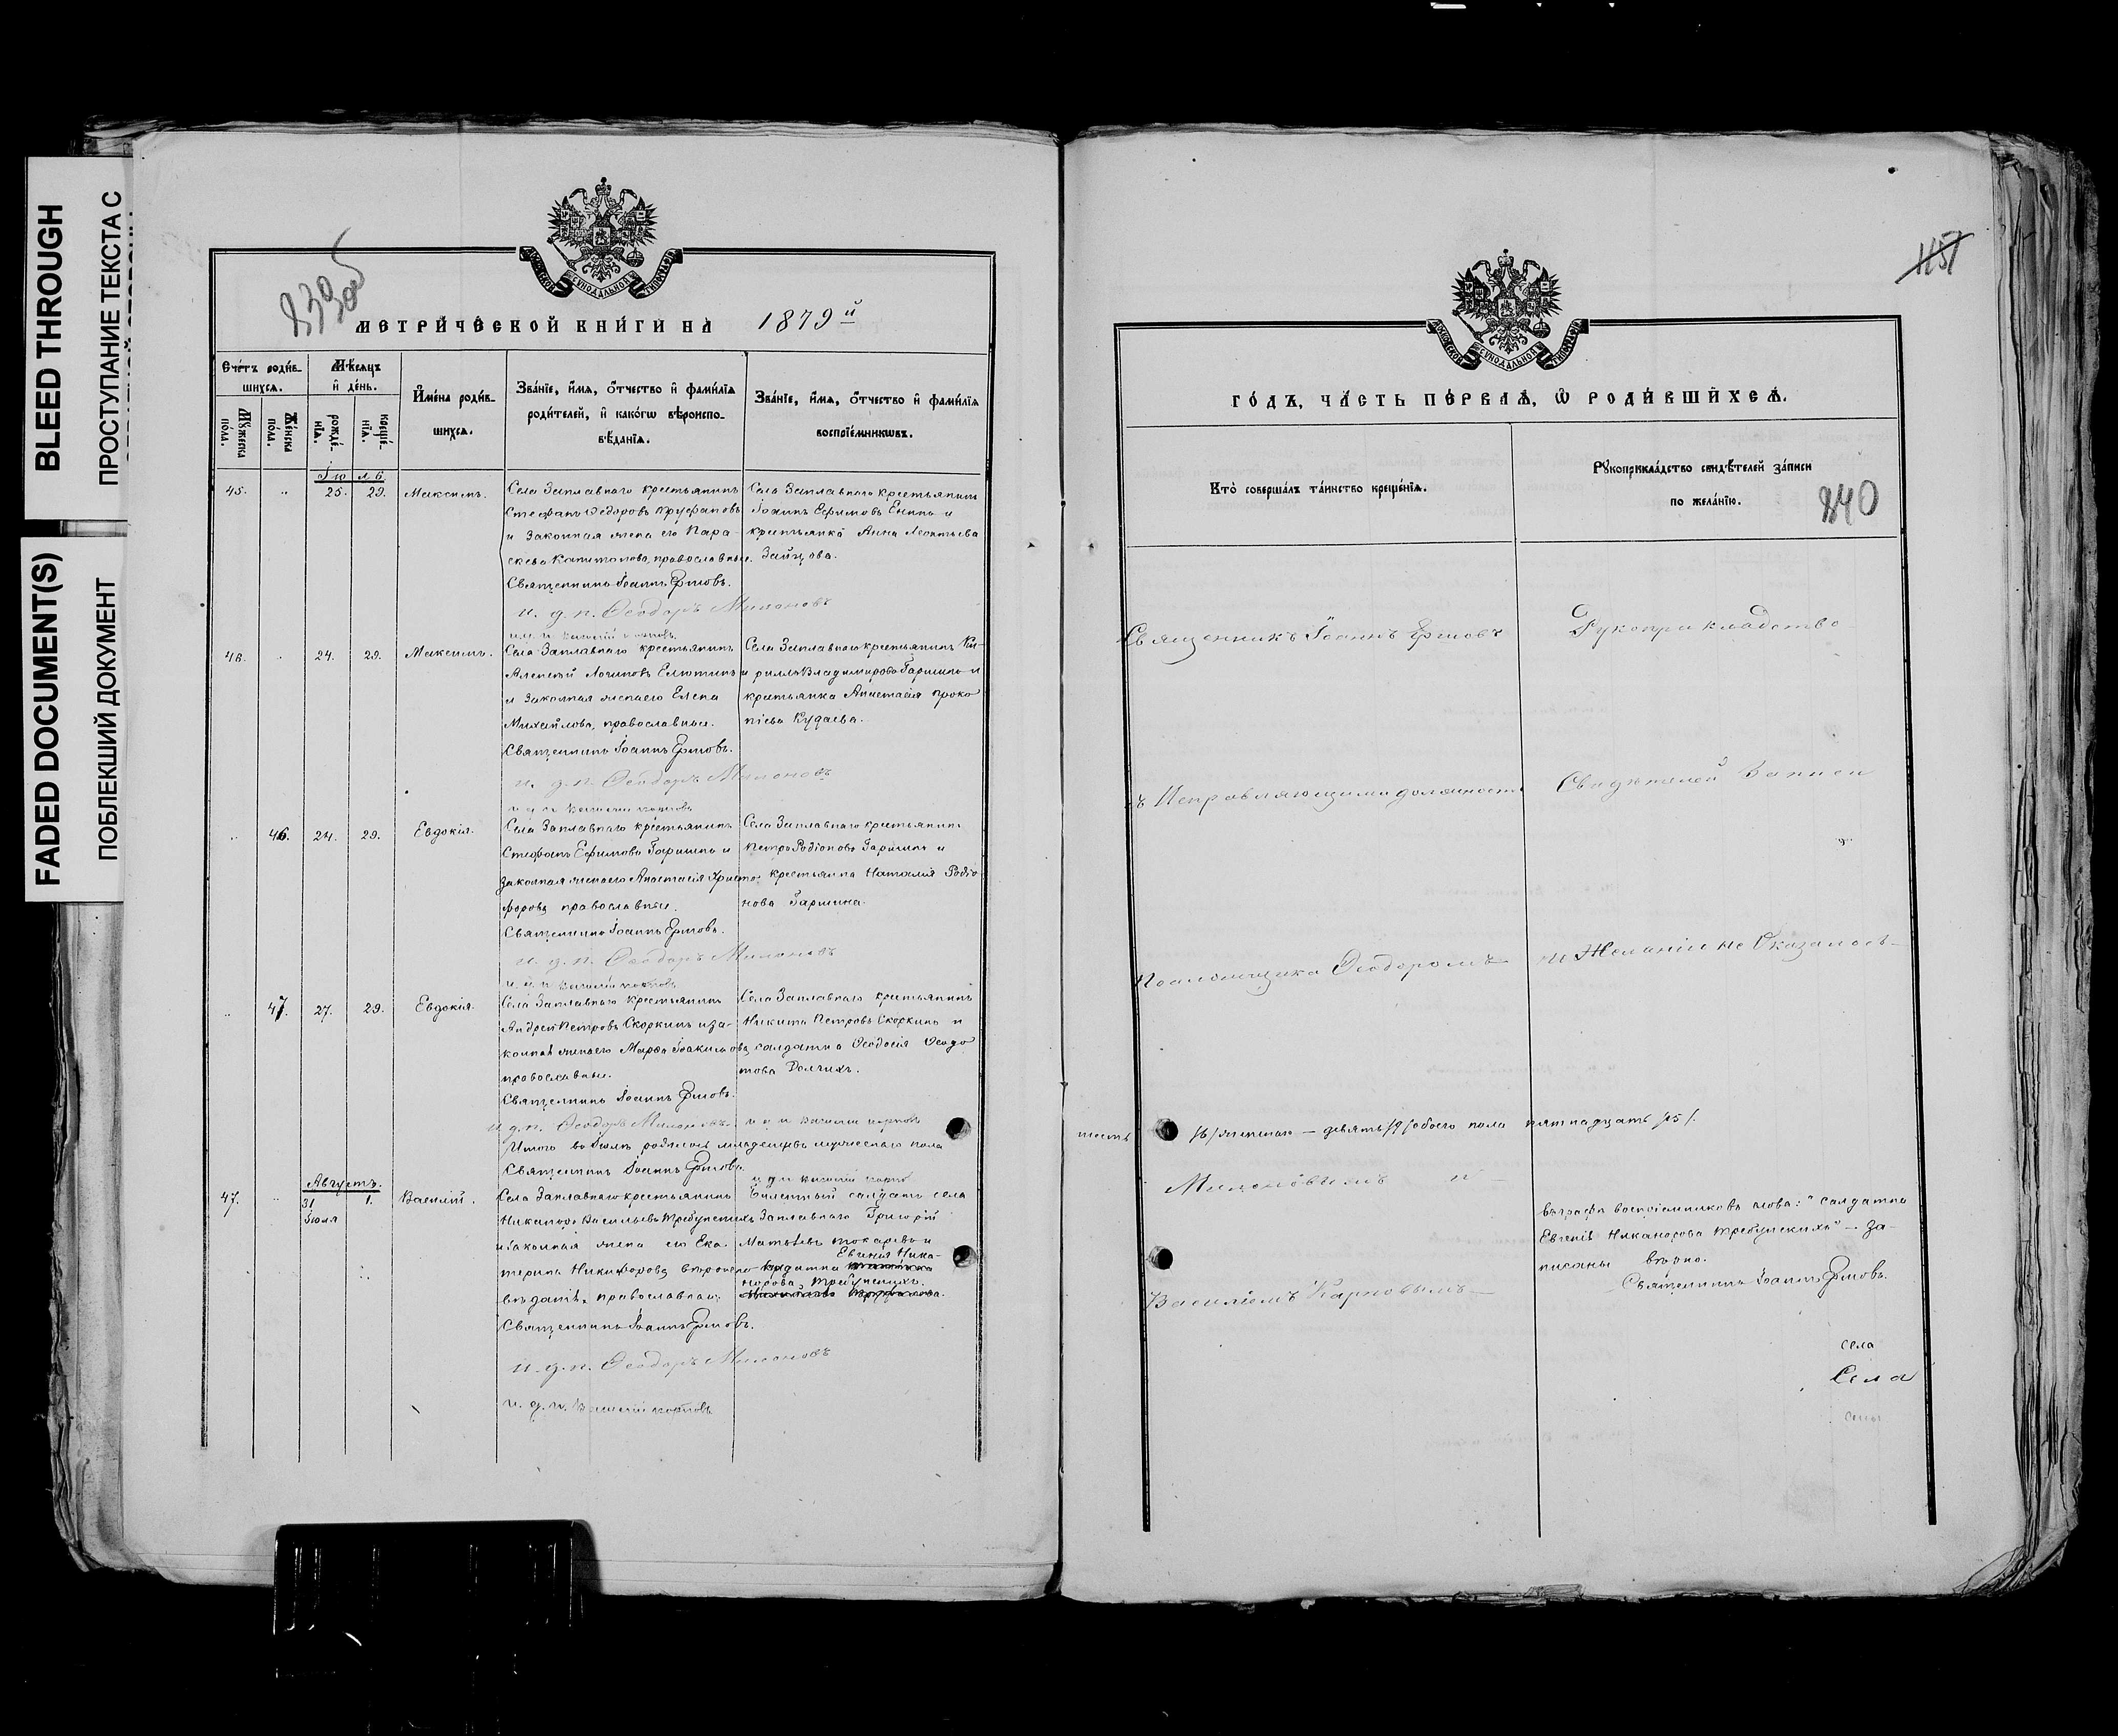 BLEED THROUGH
ПРОСТУПАНИЕ ТЕКСТА С
FADED DOCUMENT(S)
ПОБЛЕКШИЙ ДОКУМЕНТ
839об
МЕТРИЧЕСКОЙ КНИГИ НА 1879й
Счетъ родив-
шихся.
Мѣсяцъ
и день.
Мужеска
пола.
Женска
пола.
рожде-
нія.
креще-
нія.
Имена родив-
шихся.
Званіе, имя, отчество и фамилія
родителей, и какогѡ вѣроиспо-
вѣданія.
Званіе, имя, отчество и фамилія
воспріемникѡвъ.
Іюль
45. „ 25. 29. Максимъ.
Села Заплавнаго крестьянинъ
Стефанъ Ѳедоровъ
и законная жена его Пара-
скева Капитонова, православные.
Священникъ Іоаннъ Ершовъ.
и. д. п. Ѳеодоръ Милоновъ
Села Заплавнаго крестьянинъ
Іоаннъ Ефимовъ и
крестьянка Анна Леонтьева
Зайцова.
46. „ 24. 29. Максимъ.
Села Заплавнаго крестьянинъ
Алексій Логиновъ Елютинъ
и законная жена его Елена
Михайлова, православные.
Священникъ Іоаннъ Ершовъ.
и. д. п. Ѳеодоръ Милоновъ
Села Заплавнаго крестьянинъ Ки-
риллъ Владимировъ Гаршинъ и
крестьянка Анастасія Проко-
піева Кудаева.
„ 46. 24. 29. Евдокія.
Села Заплавнаго крестьянинъ
Стефанъ Ефимовъ Гаршинъ и
законная жена его Анастасія Христо-
форова православные.
Священникъ Іоаннъ Ершовъ.
и. д. п. Ѳеодоръ Милоновъ
Села Заплавнаго крестьянинъ
Петръ Родіоновъ Гаршинъ и
крестьянка Наталія Родіо-
нова Гаршина.
„ 47. 27. 29. Евдокія.
Села Заплавнаго крестьянинъ
Андрей Петровъ Скоркинъ и за-
конная жена его Марѳа Іоакимова
православные.
Священникъ Іоаннъ Ершовъ.
и. д. п. Ѳеодоръ Милоновъ
Села Заплавнаго крестьянинъ
Никита Петровъ Скоркинъ и
солдатка Ѳеодосія Ѳеодо-
това
Итого въ Іюлѣ родилось младенцевъ мужескаго пола
Священникъ Іоаннъ Ершовъ.
Августъ.
47. „ 31 1. Василій.
Іюля
Села Заплавнаго крестьянинъ
Никаноръ Васильевъ Требунскихъ
и законная жена его Ека-
терина Никифорова
православные.
Священникъ Іоаннъ Ершовъ.
и. д. п. Ѳеодоръ Милоновъ
и. д. п. Василій Карповъ
Билетный солдатъ села
Заплавнаго Григорій
Матвѣевъ Токаревъ и
Евгенія Ника-
норова Требунскихъ.
1151
ГОДЪ, ЧАСТЬ ПЕРВАЯ, Ѡ РОДИВШИХСЯ.
Кто совершалъ таинство крещенія.
Рукоприкладство свидѣтелей записи
по желанію.
840
Священникъ Іоаннъ Ершовъ
Рукоприкладство
съ Исправляющими должность
Свидѣтелей записи
Псаломщика Ѳеодоромъ
по Желанію не Оказалось
шесть /6/ женскаго — девять /9/ обоего пола пятнадцать /15/.
Милоновымъ и
Василіемъ Карповымъ
Въ графѣ воспріемниковъ слова: "солдатка
Евгенія Никанорова Требунскихъ" — за-
писаны вѣрно.
Священникъ Іоаннъ Ершовъ.
села
Села